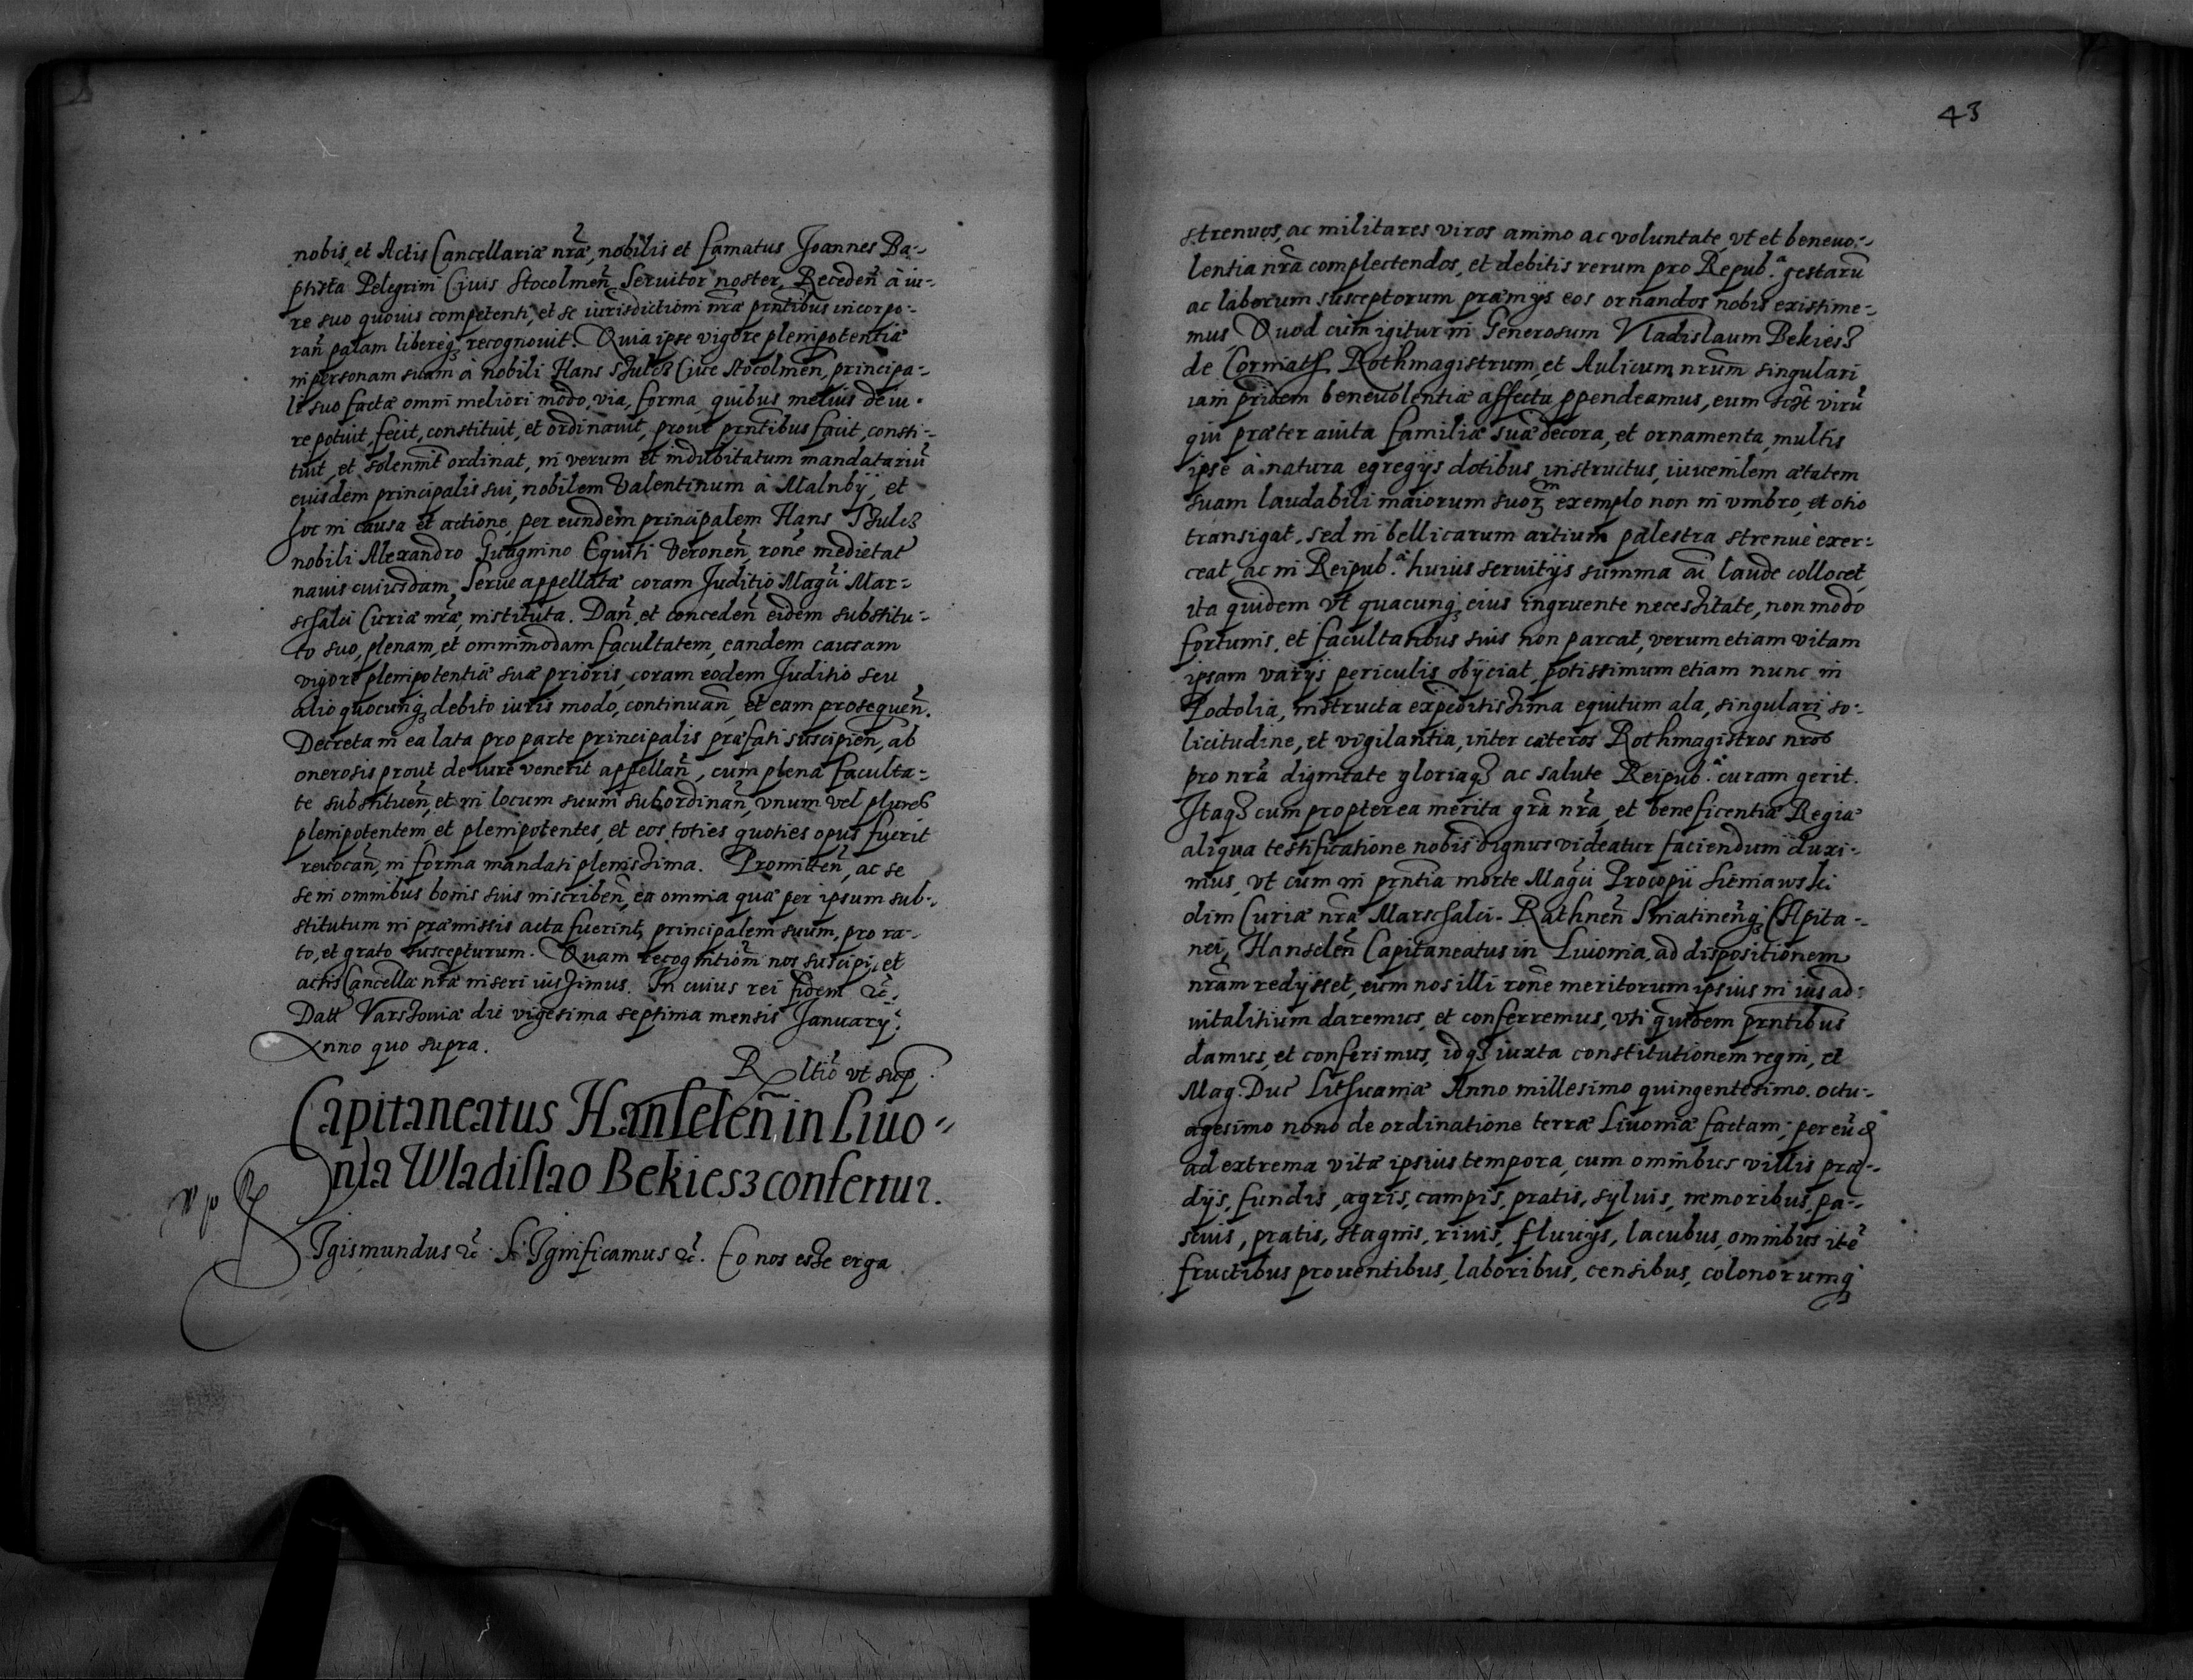 nobis, et Actis Cancellariæ nr̃æ, nobilis et famatus Joannes Ba-
ptista Pelegrini Ciuis Stocolmeñ Seruitor noster, Recedeñ à iu-
re suo quouis competenti, et se iurisdictioni nr̃æ prñtibus incorpo-
rañ palam liberèq; recognouit. Quia ipse vigore plenipotentiæ
in personam suam à nobili Hans Shulcz Ciue Stocolmeñ, principa-
li suo factæ omni meliori modo, via, forma, quibus melius de iu-
re potuit, fecit, constituit, et ordinauit, prout prñtibus facit, consti-
tuit, et solennit̃ ordinat, in verum et indubitatum mandatariũ
eiusdem principalis sui, nobilem Valentinum à Malnbÿ, et
hoc in causa et actione, per eundem principalem Hans Shulcz
nobili Alexandro Guagnino Equiti Veroneñ, roñe medietat̃
nauis cuiusdam, Serue appellatæ coram Juditio Magci Mar-
schalci Curiæ nr̃æ, instituta. Dañ, et concedeñ eidem substitu-
to suo, plenam, et omnimodam facultatem, eandem causam
vigore plenipotentiæ suæ prioris, coram eodem Juditio seu
alio quocunq; debito iuris modo, continuañ, et eam prosequeñ.
Decreta in ea lata pro parte principalis præfati suscipieñ, ab
onerosis prout de iure venerit appellañ, cum plena faculta-
te substitueñ, et in locum suum subordinañ, vnum vel plures
plenipotentem, et plenipotentes, et eos toties quoties opus fuerit
reuocañ, in forma mandati plenissima. Promitteñ, ac se
se in omnibus bonis suis inscribeñ, ea omnia quæ per ipsum sub-
stitutum in præmissis acta fuerint, principalem suum, pro ra-
to, et grato suscepturum. Quam recognitioñ nos suscipi, et
actis Cancellæ nr̃æ inseri iussimus. In cuius rei fidem &c̃.
Datt̃ Varssouiæ die vigesima septima mensis January.
Anno quo supra.
Rltio vt sup.
Capitaneatus Hanseleñ in Liuo-
nia Wladislao Bekiesz confertur.
SIgismundus &c̃. SIgnificamus &c̃. Eo nos esse erga
43
strenuos, ac militares viros animo ac voluntate, vt et beneuo-
lentia nr̃a complectendos, et debitis rerum pro Repub.a gestarũ
ac laborum susceptorum præmijs eos ornandos nobis existime-
mus, Quod cùm igitur in Generosum Vladislaum Bekiesz
de Corniath Rothmagistrum, et Aulicum nrũm singulari
iam pridem beneuolentiæ affectu ppendeamus, eum virũ
qui præter auita familiæ suæ decora, et ornamenta, multis
ipse à natura egregijs dotibus instructus, iuuenilem ætatem
suam laudabili maiorum suorum exemplo non in vmbro, et otio
transigat, sed in bellicarum artium palestra strenuè exer-
ceat, ac in Reipub.a huius seruitijs summa cũ laude collocet,
ita quidem vt quacunq; eius ingruente necessitate, non modo
fortunis, et facultatibus suis non parcat, verum etiam vitam
ipsam varijs periculis obijciat, potissimum etiam nunc in
Podolia, instructa expeditissima equitum ala, singulari so-
licitudine, et vigilantia, inter cæteros Rothmagistros nr̃os
pro nr̃a dignitate gloriaq; ac salute Reipub.a curam gerit.
Itaq; cum propter ea merita grã nr̃a, et beneficentiæ Regiæ
aliqua testificatione nobis dignus videatur faciendum duxi-
mus, vt cum in prñtia morte Magci Procopii Sieniawski
olim Curiæ nr̃æ Marschalci. Rathneñ Sniatineñq; Capita-
nei, Hanseleñ Capitaneatus in Liuonia, ad dispositionem
nr̃am redijsset, eum nos illi roñe meritorum ipsius in ius ad-
uitalitium daremus, et conferremus, vti quidem prñtibus
damus, et conferimus, idq; iuxta constitutionem regni, et
Mag. Duc̃ Lithuaniæ Anno millesimo quingentesimo. octu-
agesimo nono de ordinatione terræ Liuoniæ factam, per eũd
ad extrema vitæ ipsius tempora, cum omnibus villis præ-
dijs, fundis, agris, campis, pratis, syluis, nemoribus, pa-
scuis, pratis, stagnis, riuis, fluuijs, lacubus, omnibus itẽ
fructibus prouentibus, laboribus, censibus, colonorumq;